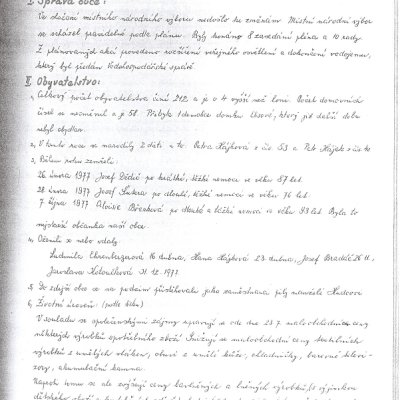 I. Správa obce:
Ve složení místního národního výboru nedošlo ke změnám. Místní národní výbor
se scházel pravidelně podle plánu. Byly konány 8 zasedání pléna a 10 rady.
Z plánovaných akcí provedeno rozšíření veřejného osvětlení a dokončení vodojemu,
který byl předán Vodohospodářské správě.
II. Obyvatelstvo:
1, Celkový počet obyvatelstva činí 212 a je o 4 vyšší než loni. Počet domovních
čísel se nezměnil a je 58. Přibyla 1 demolice domku, který již delší dobu
nebyl obydlen.
2, V tomto roce se narodily 2 děti a to: Petra Hájková v čp. 53 a Petr Hájek v čp.
3, Během roku zemřeli:
26. února 1977 Josef Dědič po krátké, těžké nemoci ve věku 87 let.
28. února 1977 Josef po dlouhé, těžké nemoci ve věku 76 let.
7. října 1977 Aloisie Březková po dlouhé a těžké nemoci ve věku 93 let. Byla to
nejstarší občanka naší obce.
4, Oženili se nebo vdaly:
Ludmila Ehrenbergerová 16. dubna, Hana Hájková 23. dubna, Josef Bradáč 26.
Jaroslava 31. 12. 1977.
5, Do zdejší obce se na podzim přistěhovali jako zaměstnanci pily manželé
6, Životní úroveň:
V souladu se společenskými zájmy upravují se ode dne 23. 7. maloobchodní ceny
některých výrobků spotřebního zboží. Snižují se maloobchodní ceny textilních
výrobků z umělých vláken, obuvi z umělé kůže, chladničky, barevné televi-
zory, akumulační kamna.
Naproti tomu se ale zvyšují ceny bavlněných a lněných výrobků, s výjimkou
dětského zboží a